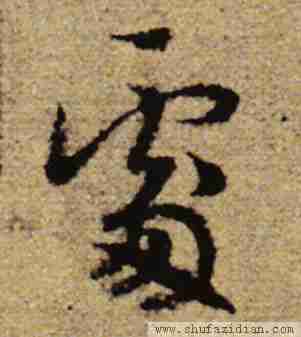 慮
www.shufazidian.com